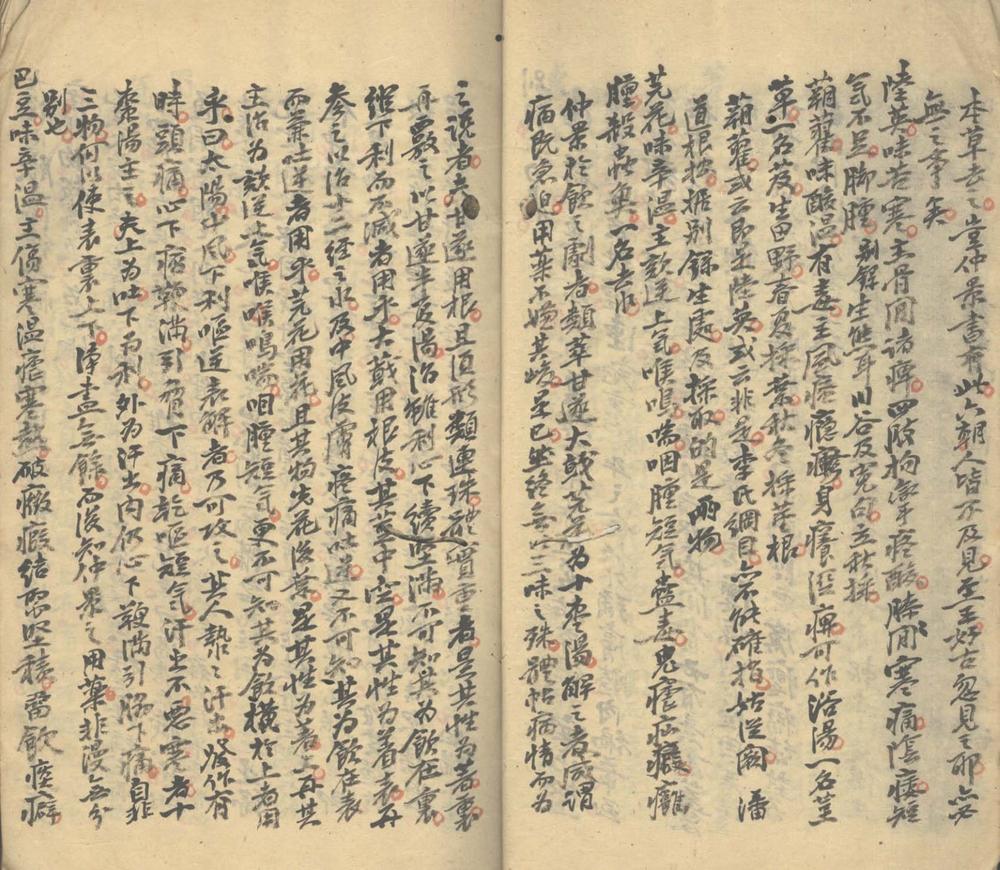 本草云云豈仲景書乎此六朝人皆不及見至王好古忽見之耶亦必
無之事矣
陸英味苦寒主骨間諸痺四肢拘攣疼酸膝間寒痛陰痿短
氣不足脚腫別録生熊耳川谷及冤句立秋採
蒴藋味酸温有毒主風瘙癮疹身癢湿痺可作浴湯一名堇
草一名芨生田野春夏採葉秋冬採茎根
蒴藋或云即是陸英或云非是李氏綱目亦不能確指姑従闕
道根按據別録生處及採取的是兩物
芫花味辛温主欬逆上氣喉鳴喘咽腫短氣蠱毒鬼瘧疝瘕癰
腫殺蟲魚一名去水
仲景於飲之劇者類萃甘遂大戟芫花為十棗湯解之者咸謂
病既急迫用薬不嫌其峻是已然終無以三味之殊體帖病情而為
之説者夫甘遂用根且須形類連珠體實重者是其性為著裏
再覈之以甘遂半夏湯治雖利心下續堅滿不可知其為飲在裏
継下利而不減者用乎大戟用根皮其茎中空是其性為著表再
參之以治十二経之水及中風皮膚疼痛吐逆又不可知其為飲在表
而兼吐逆者用乎芫花用花且其物先花後葉是其性為著上再其
主治為欬逆上气喉鳴喘咽腫短气更不可知其為飲横於上者用
乎曰太陽中風下利嘔逆表解者乃可攻之其人漐漐汗出發作有
時頭痛心下痞鞕滿引脅下痛乾嘔短氣汗出不惡寒者十
棗湯主之夫上為吐下為利外為汗出内仍心下鞕滿引脇下痛自非
三物何以使表裏上下浄盡無餘而後知仲景之用薬非漫無分
別也
巴豆味辛温主傷寒温瘧寒熱破癥瘕結聚堅積留飲痰癖